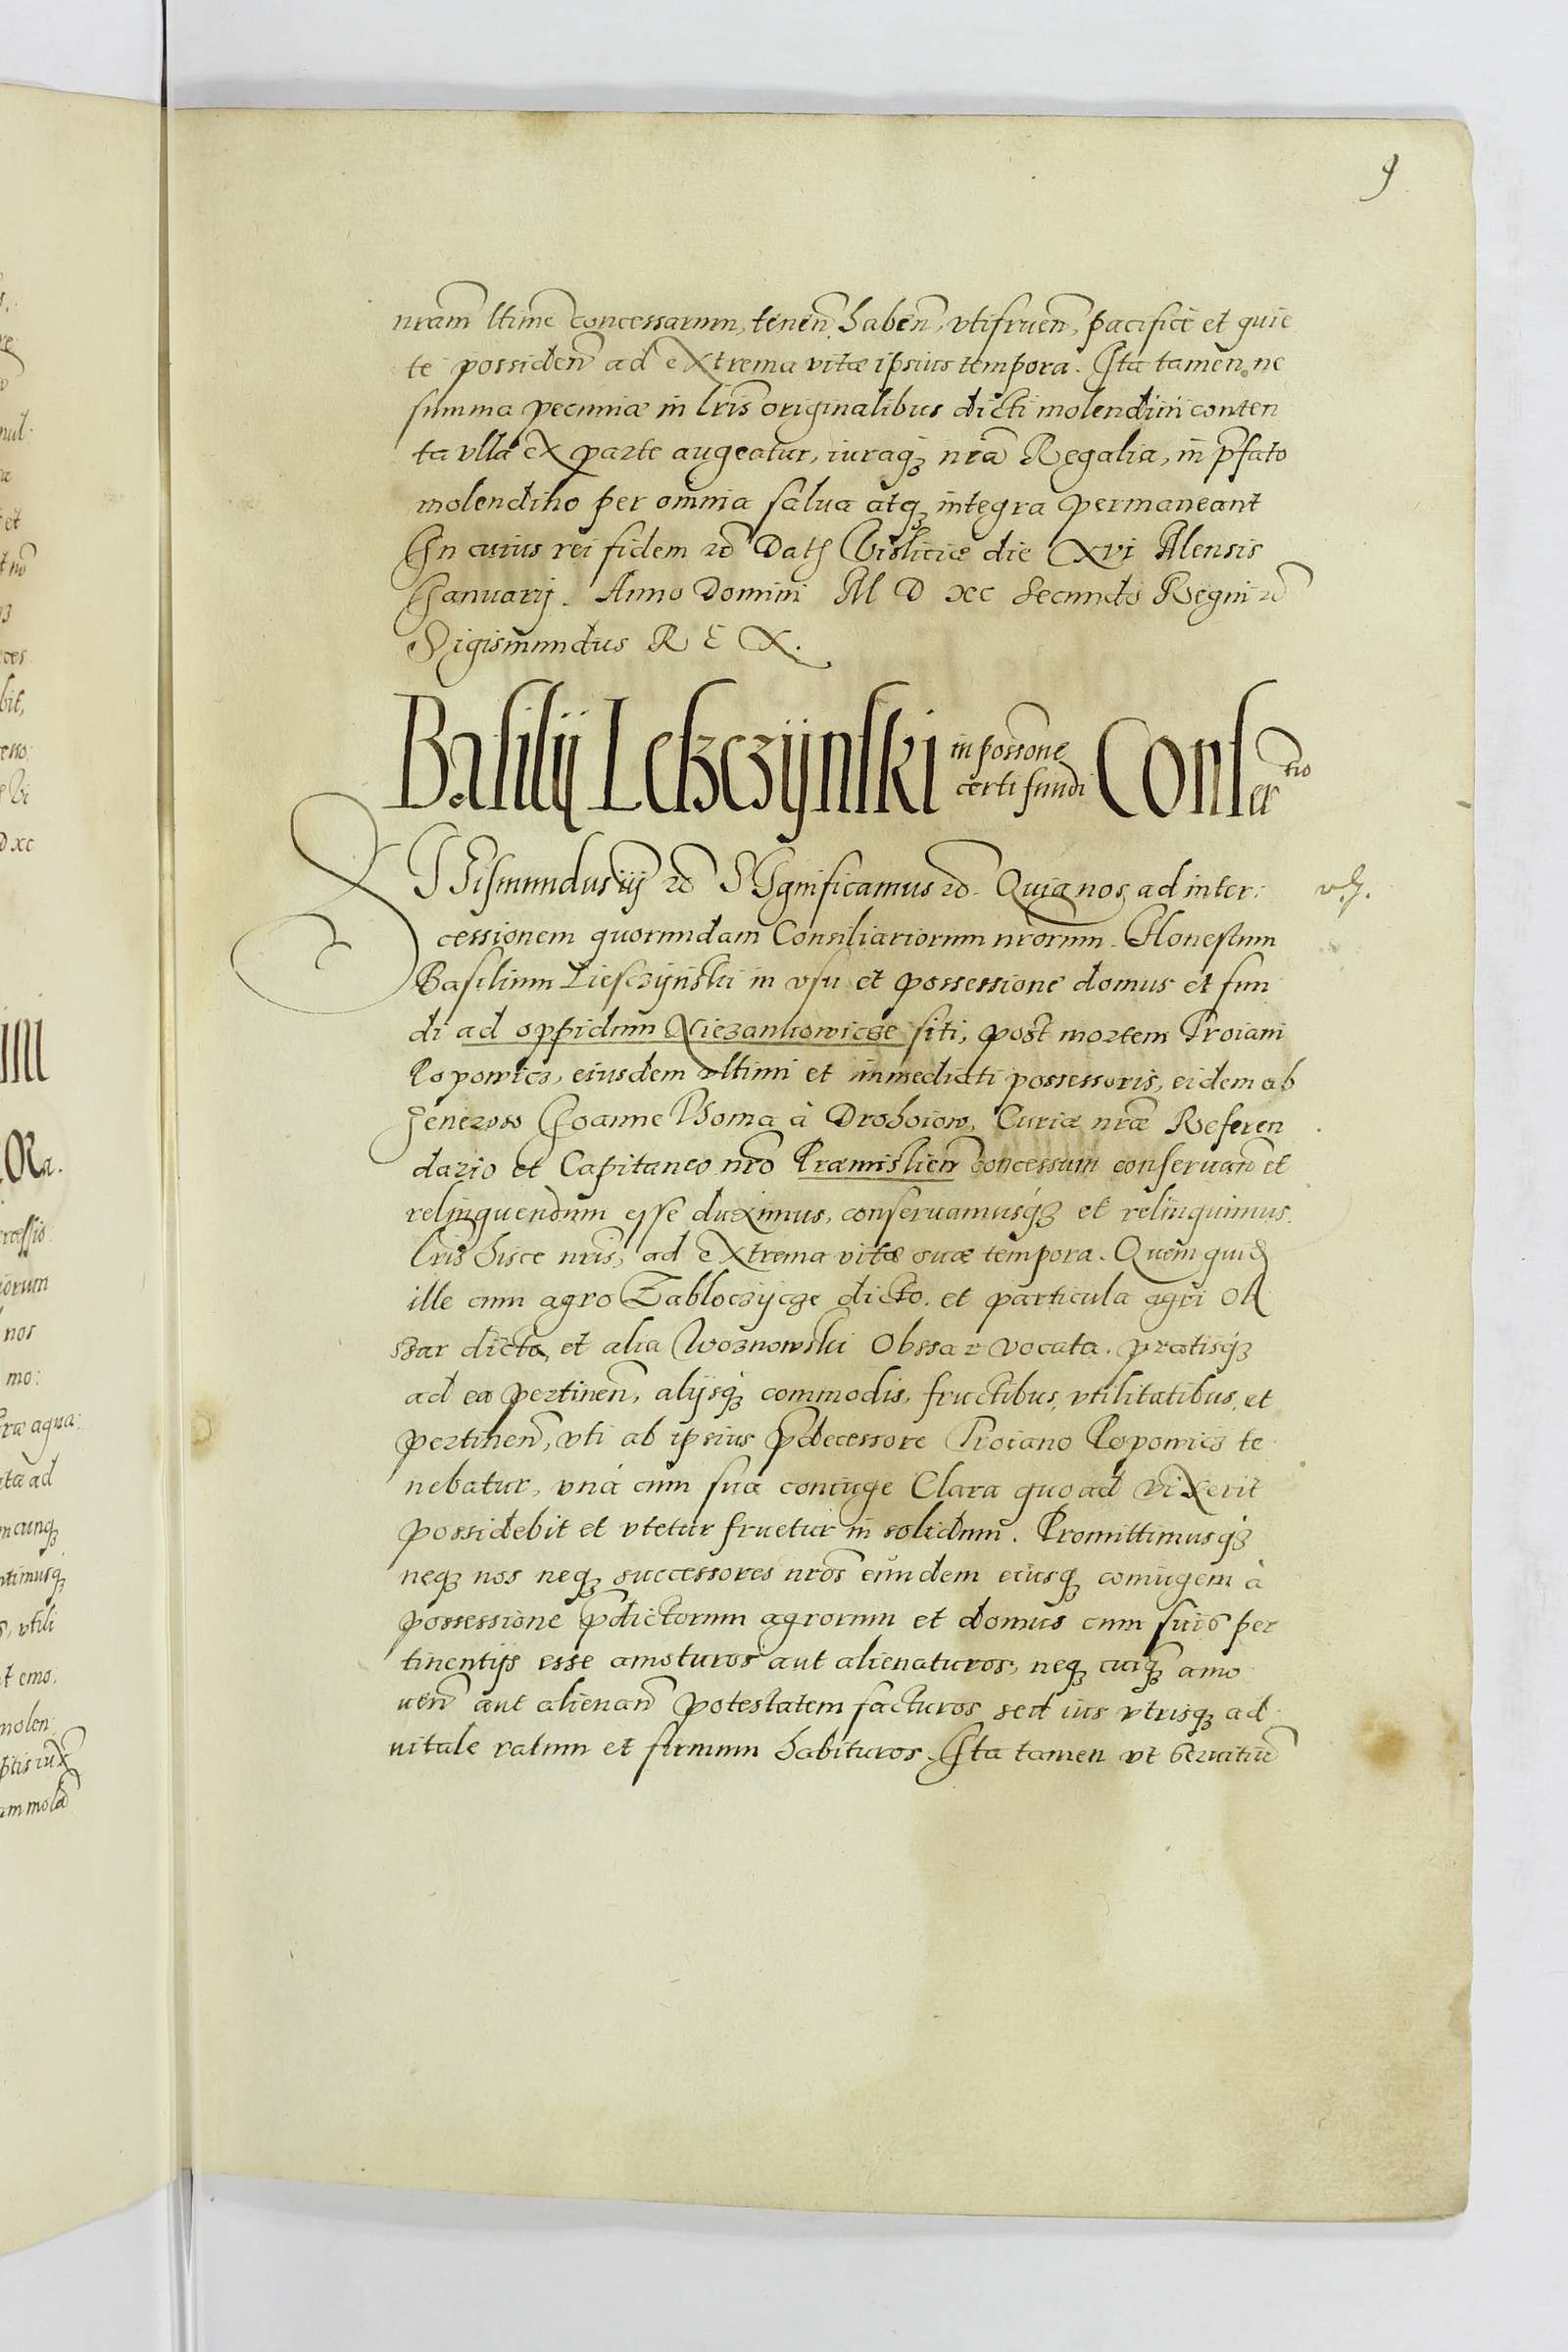 9
nram ltime concessarum, tenen, haben, vtifruen, pacifice et quie
te possiden ad extrema vitæ ipsius tempora. Ita tamen ne
summa pecuniæ in lris originalibus dicti molendini conten
ta vlla ex parte augeatur, iuraqȝ nra Regalia, in pfato
molendino per omnia salua atqȝ integra permaneant
In cuius rei fidem etc Dat Visliciæ die XVI Mensis
Januarij. Anno Domini M D XC Secundo Regni etc
Sigismundus R E X.
Basilij Leszczijnski in possone certi fundi Conseruatio
SIGismundus iij etc SIgnificamus etc. Quia nos ad inter:
cessionem quorundam Consiliariorum nrorum. Honestum
Basilium Liesczijnski in vsu et possessione domus et fun
di ad oppidum Niezankowicze siti, post mortem Troiani
Popowicz, eiusdem vltimi et immediati possessoris, eidem ab
Generoso Joanne Thoma à Drohoiow, Curiæ nræ Referen
dario et Capitaneo nro Præmislien concessum conseruand et
relinquendum esse duximus, conseruamusqȝ et relinquimus
lris hisce nris, ad extrema vitæ suæ tempora. Quem quid
ille cum agro Zabloczijcze dicto. et particula agri Ob
szar dicta, et alia Woznowski Obssar vocata. pratisqȝ
ad ea pertinen, alijsqȝ commodis, fructibus, vtilitatibus, et
pertinen, vti ab ipsius pdecessore Troiano Popowicz te
nebatur, vnà cum sua coniuge Clara quoad vixerit
possidebit et vtetur fruetur in solidum. Promittimusqȝ
neqȝ nos neqȝ successores nros eundem eiusqȝ coniugem à
possessione pdictorum agrorum et domus cum suis per
tinentijs esse amoturos aut alienaturos, neqȝ cuiqȝ amo
uen aut alienan potestatem facturos sed ius vtrisqȝ ad
uitale ratum et firmum habituros. Ita tamen vt seruitiu